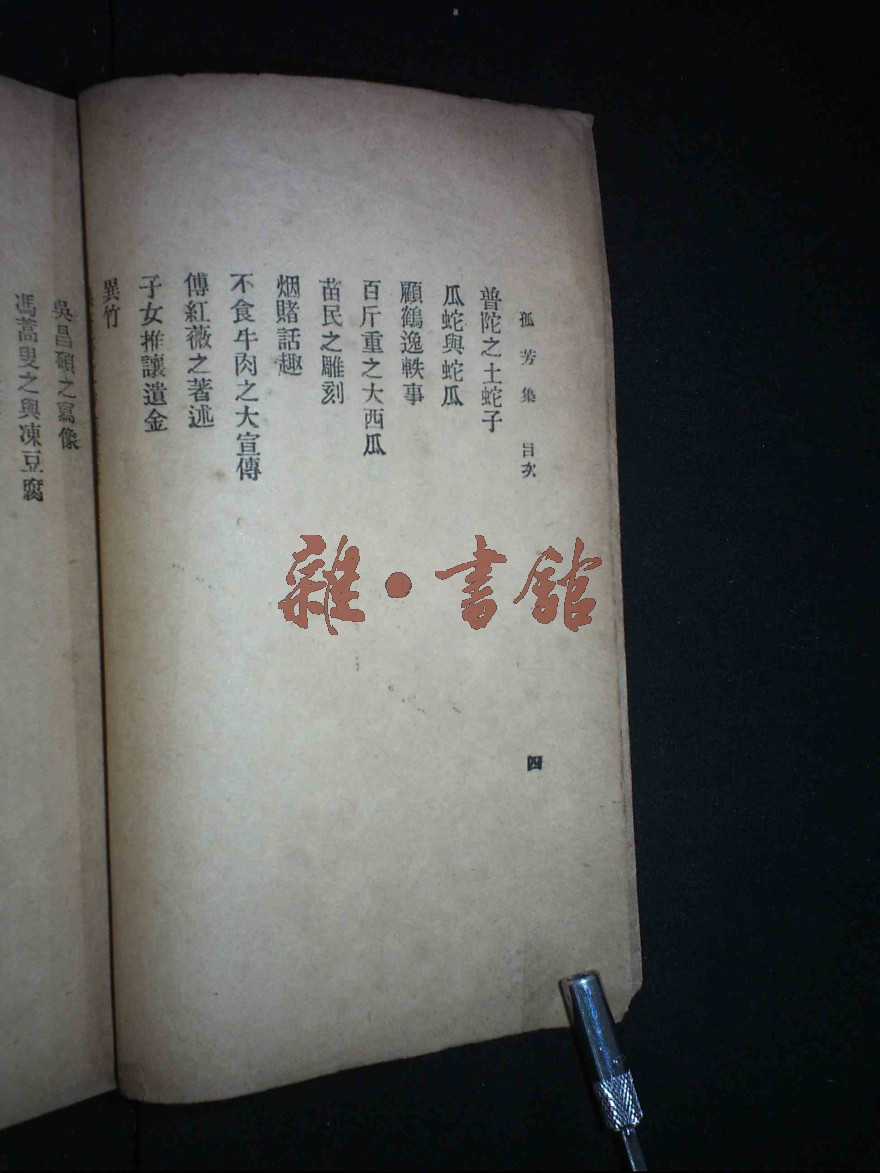 孤芳集 目次
四
普陀之土蛇子
瓜蛇與蛇瓜
顧鶴逸軼事
百斤重之大西瓜
苗民之雕刻
烟賭話趣
不食牛肉之大宣傳
傅紅薇之著述
子女推讓遺金
異竹
吳昌碩之寫像
馮蒿叟之與凍豆腐
雜·書館